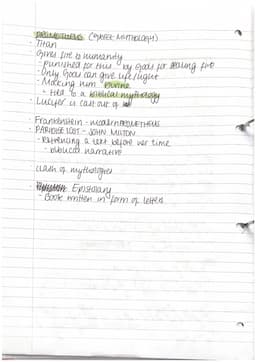 PROMETHEUS (GREEK MYTHOLOGY)
Titan
Gives fire to humanity
- punished for this by gods for stealing fire
- Only God can give life/light
- Making him divine
- tied to a biblical mythology
- Lucifer is cast out of
Frankenstein - modern PROMETHEUS
PARADISE LOST - JOHN MILTON
- Referencing a text before her time
- biblical narrative
clash of mythologies
- Epistolary
- Book written in form of letters